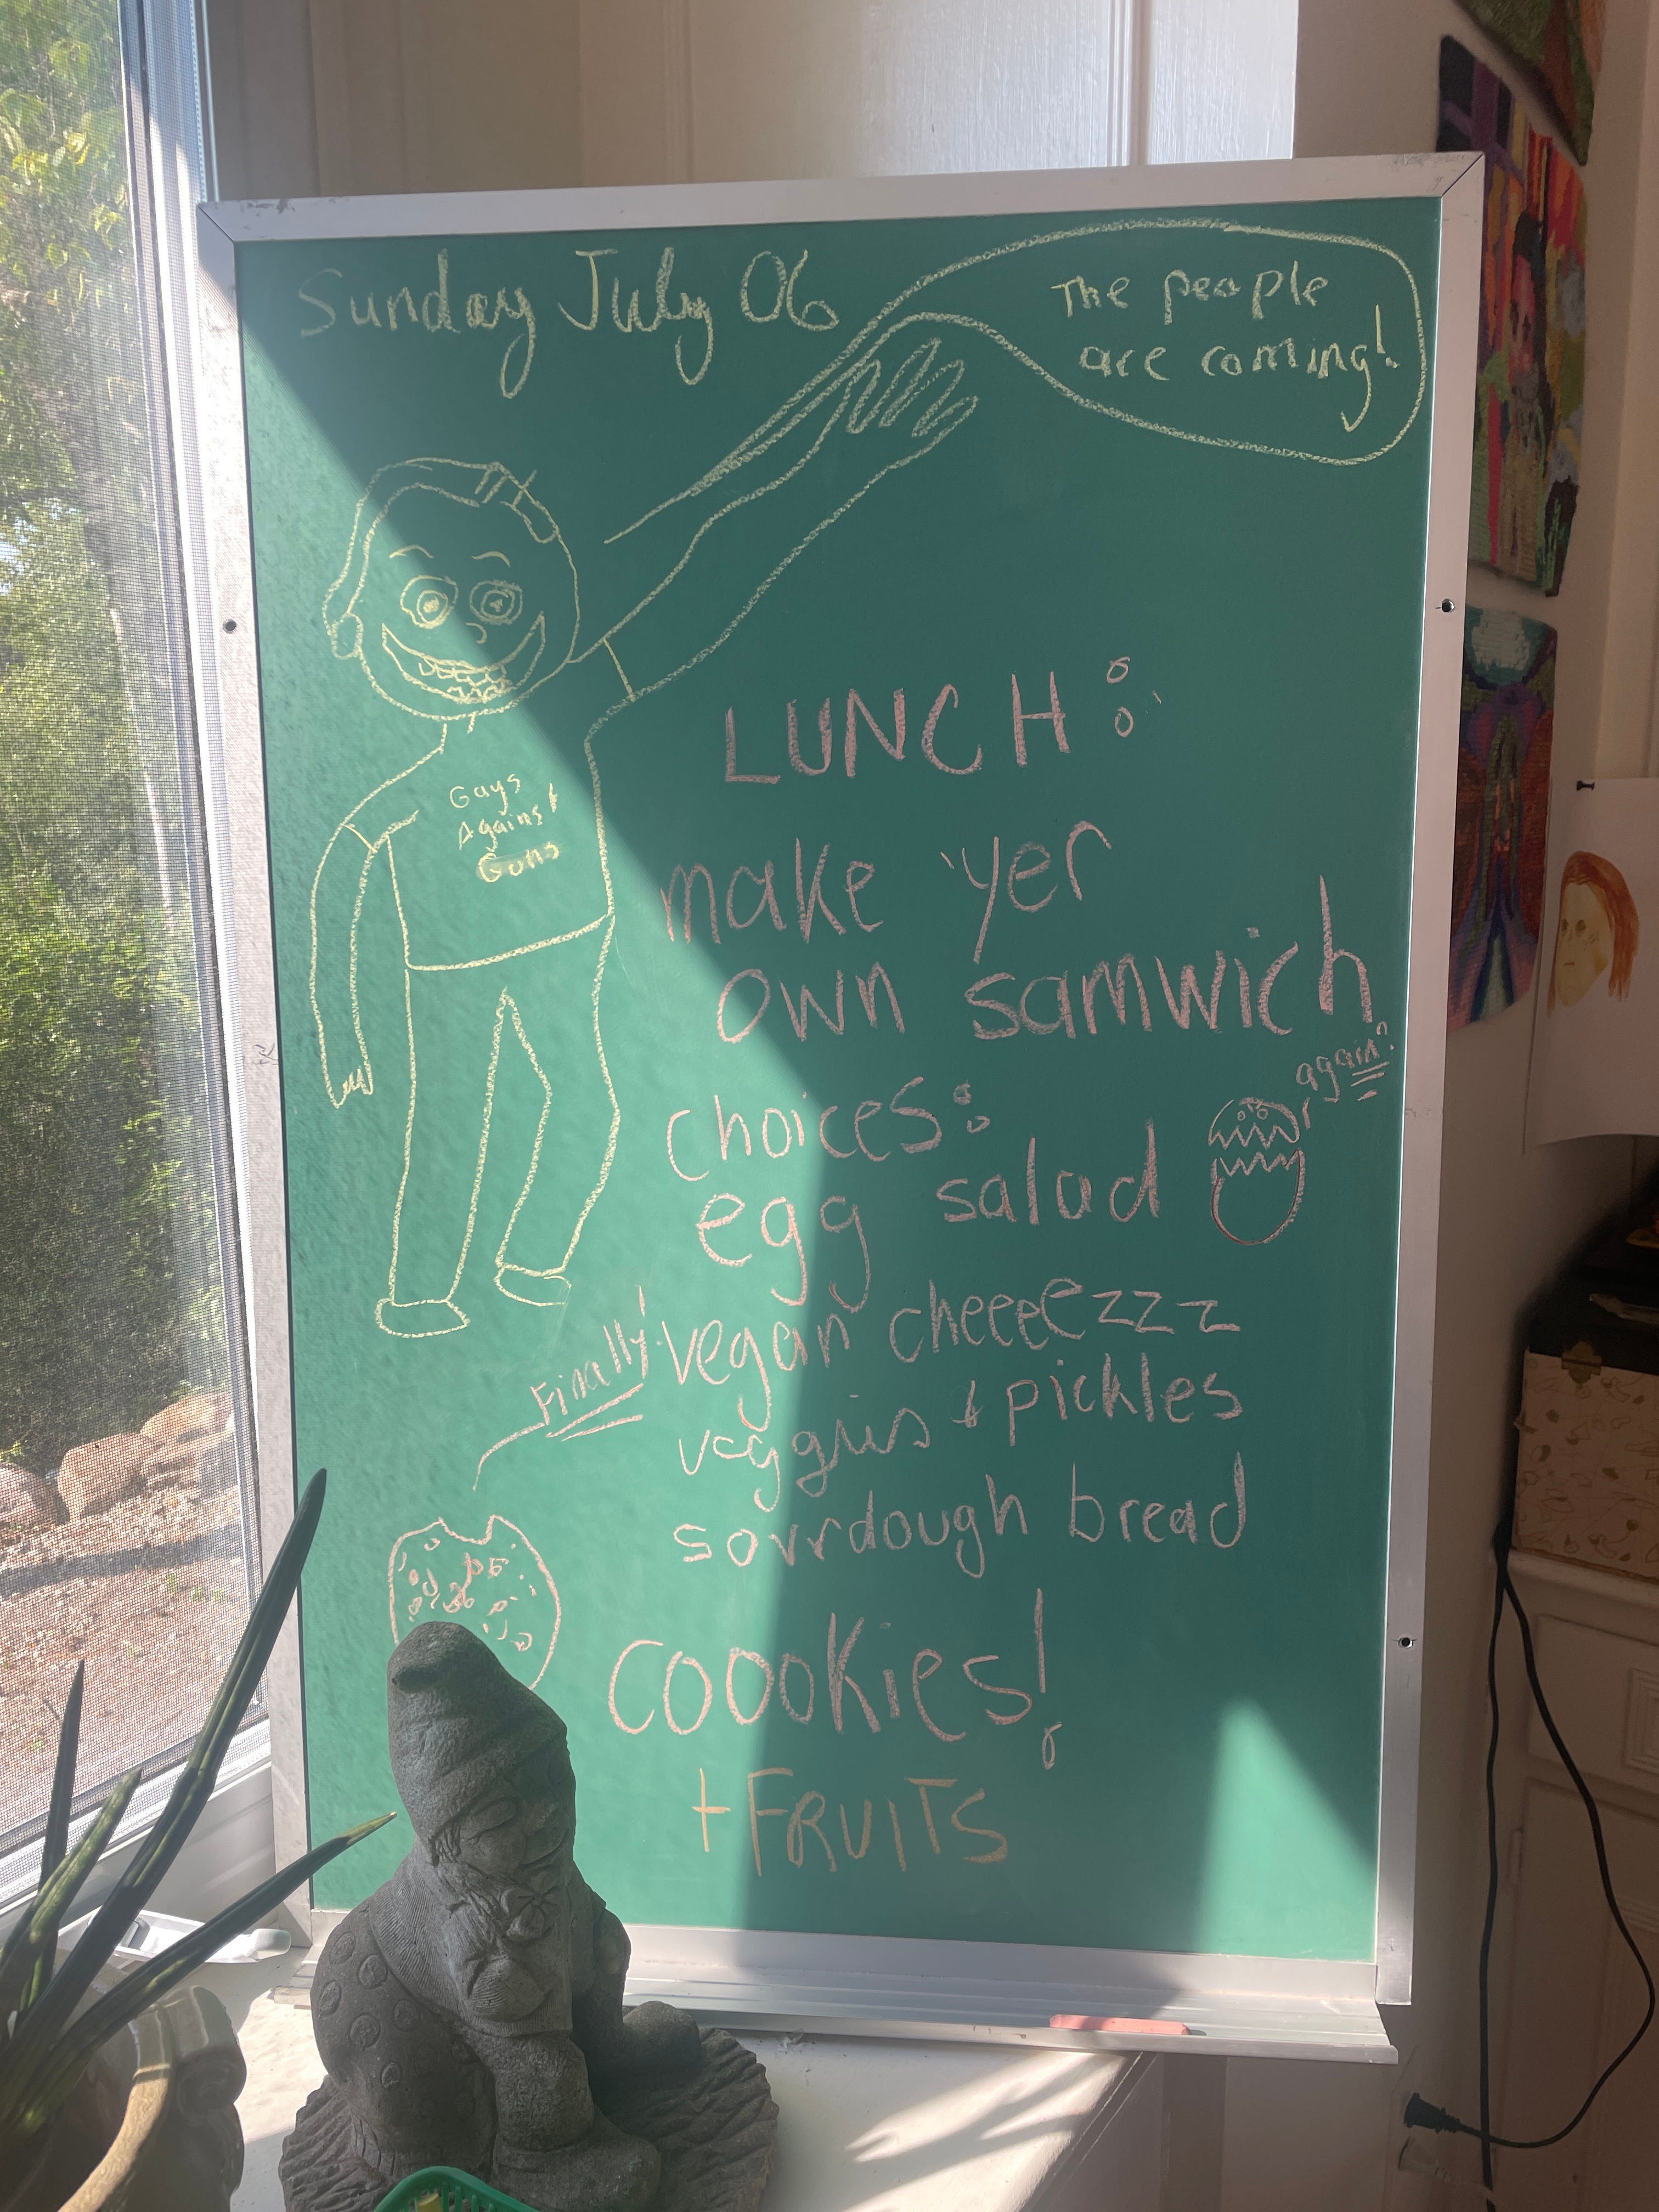 Sunday July 06
The people
are coming!
Gays
Against
Guns
LUNCH:
make 'yer
own samwich
choices:
again?
egg salad
Finally!
vegan cheeeezzz
veggies + pickles
sourdough bread
COOOKies!
+ FRUITS